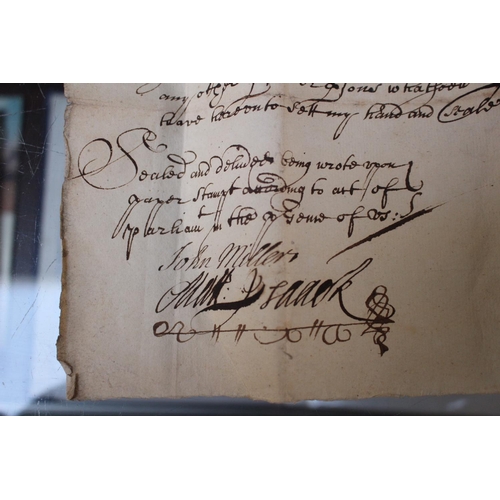 any other
have hereunto sett my hand and Seale
Sealed and delivered being wrote upon
paper stampt according to act of
Parliamt in the psence of us:
John Miller
Isaack